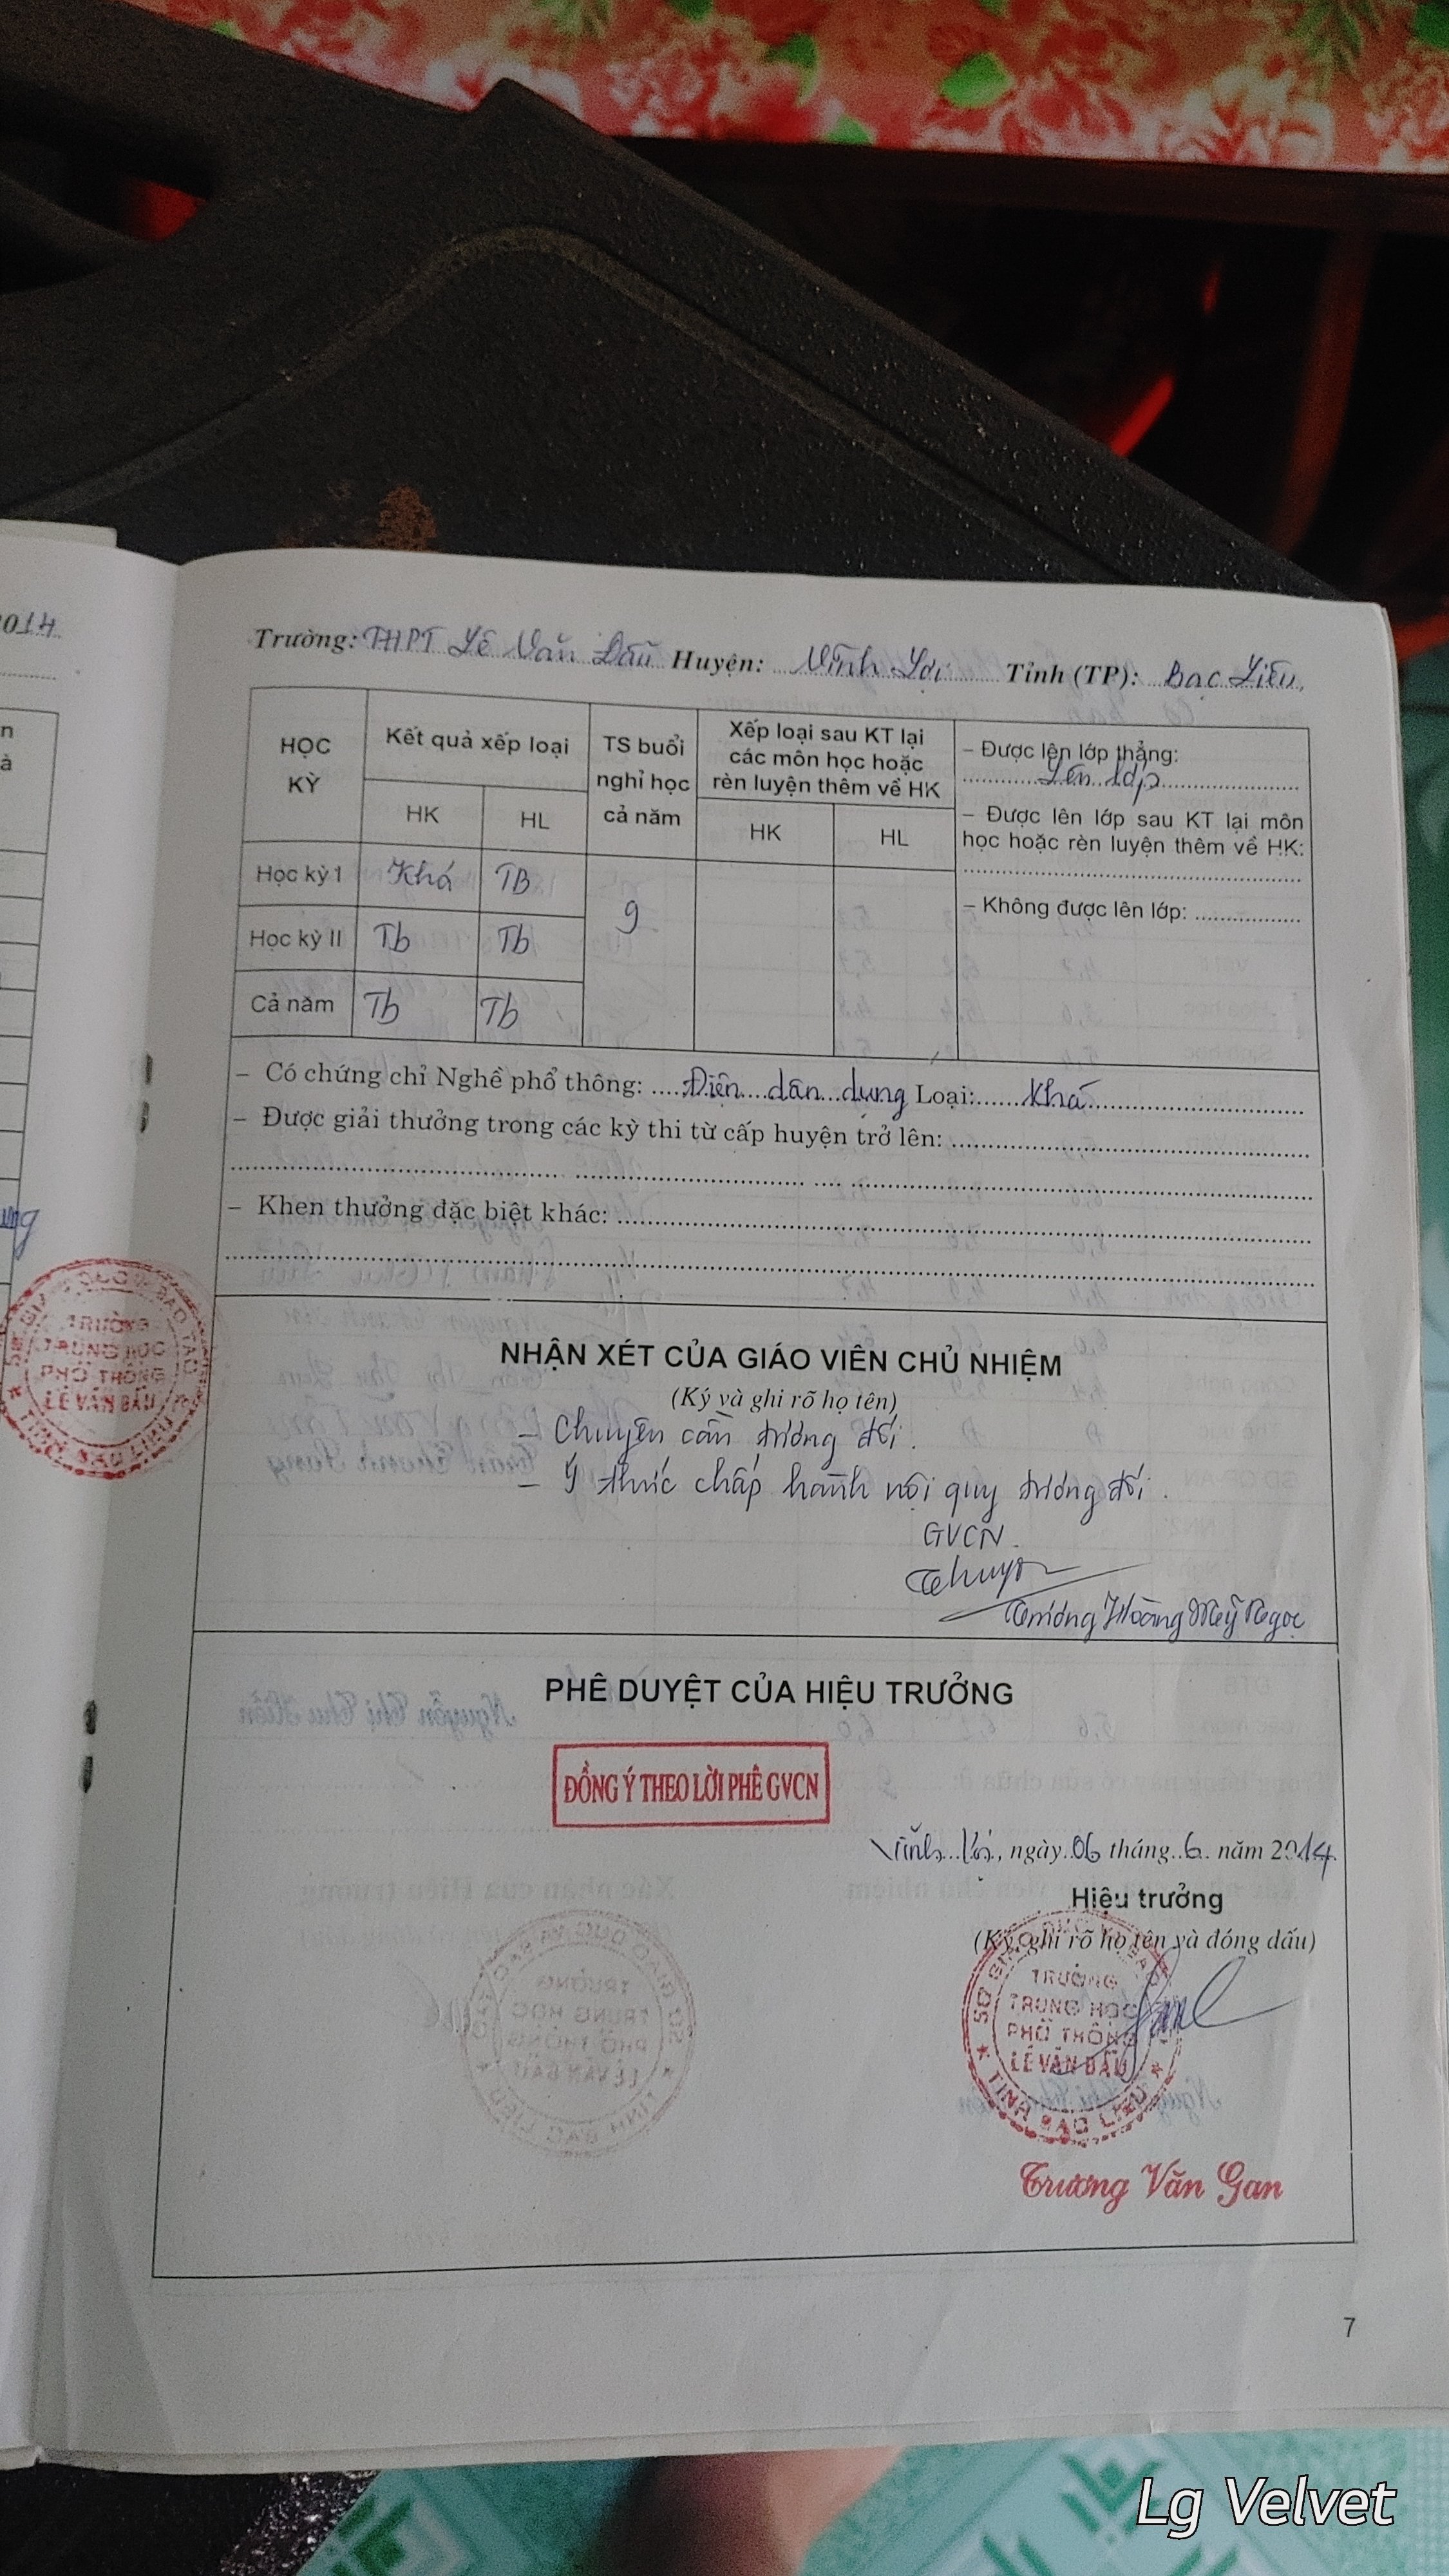 2014
Trường: THPT Lê Văn Đẩu Huyện: Vĩnh Lợi Tỉnh (TP): Bạc Liêu
HỌC KỲ
Kết quả xếp loại
HK HL
TS buổi nghỉ học cả năm
Xếp loại sau KT lại các môn học hoặc rèn luyện thêm về HK
HK HL
– Được lên lớp thẳng:
Lên lớp
– Được lên lớp sau KT lại môn
học hoặc rèn luyện thêm về HK:
– Không được lên lớp:
Học kỳ I Khá TB
9
Học kỳ II Tb Tb
Cả năm Tb Tb
– Có chứng chỉ Nghề phổ thông: Điện dân dụng Loại: Khá
– Được giải thưởng trong các kỳ thi từ cấp huyện trở lên:
– Khen thưởng đặc biệt khác:
TRƯỜNG
TRUNG HỌC
PHỔ THÔNG
LÊ VĂN ĐẨU
NHẬN XÉT CỦA GIÁO VIÊN CHỦ NHIỆM
(Ký và ghi rõ họ tên)
– Chuyên cần tương đối.
– Ý thức chấp hành nội quy tương đối.
GVCN.
Trương Hoàng Mỹ Ngọc
PHÊ DUYỆT CỦA HIỆU TRƯỞNG
ĐỒNG Ý THEO LỜI PHÊ GVCN
Vĩnh Lợi, ngày 06 tháng 6 năm 2014
Hiệu trưởng
(Ký, ghi rõ họ tên và đóng dấu)
SỞ GIÁO DỤC VÀ ĐÀO TẠO
TRƯỜNG
TRUNG HỌC
PHỔ THÔNG
LÊ VĂN ĐẨU
TỈNH BẠC LIÊU
Trương Văn Gan
7
Lg Velvet